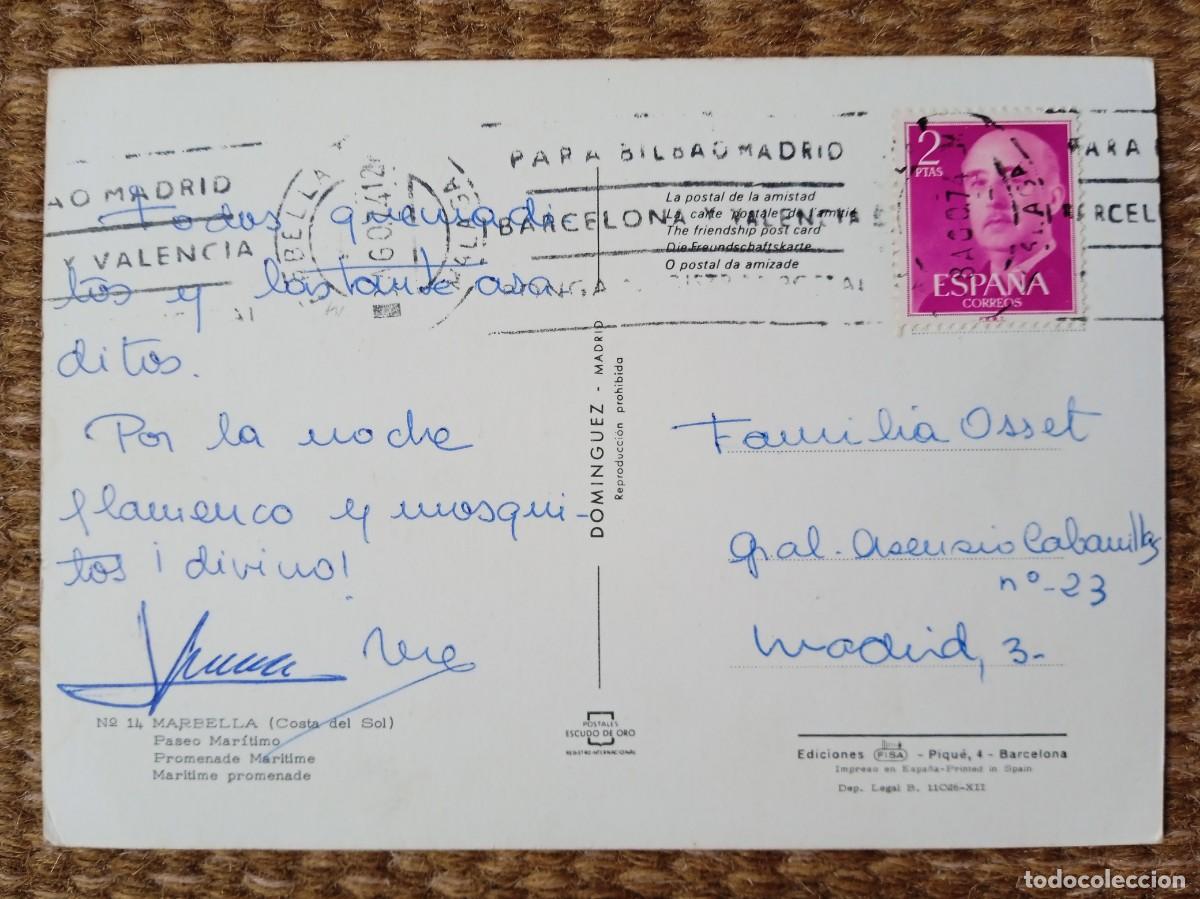 PARA BILBAO MADRID
BARCELONA Y VALENCIA
AO MADRID
Y VALENCIA
MARBELLA
AGO 74 12
MALAGA
PARA
BARCEL
2
PTAS
ESPAÑA
CORREOS
La postal de la amistad
La carte postale de l'amitié
The friendship post card
Die Freundschaftskarte
O postal da amizade
Todos quemadi
tos y bastante asa
ditos.
Por la noche
flamenco y mosqui-
tos ¡divino!
Nº 14 MARBELLA (Costa del Sol)
Paseo Marítimo
Promenade Maritime
Maritime promenade
DOMINGUEZ - MADRID
Reproducción prohibida
POSTALES
ESCUDO DE ORO
REGISTRO INTERNACIONAL
Familia Osset
Gral. Asensio Cabanillas
nº-23
Madrid, 3-
Ediciones FISA - Piqué, 4 - Barcelona
Impreso en España-Printed in Spain
Dep. Legal B. 11026-XII
todocoleccion